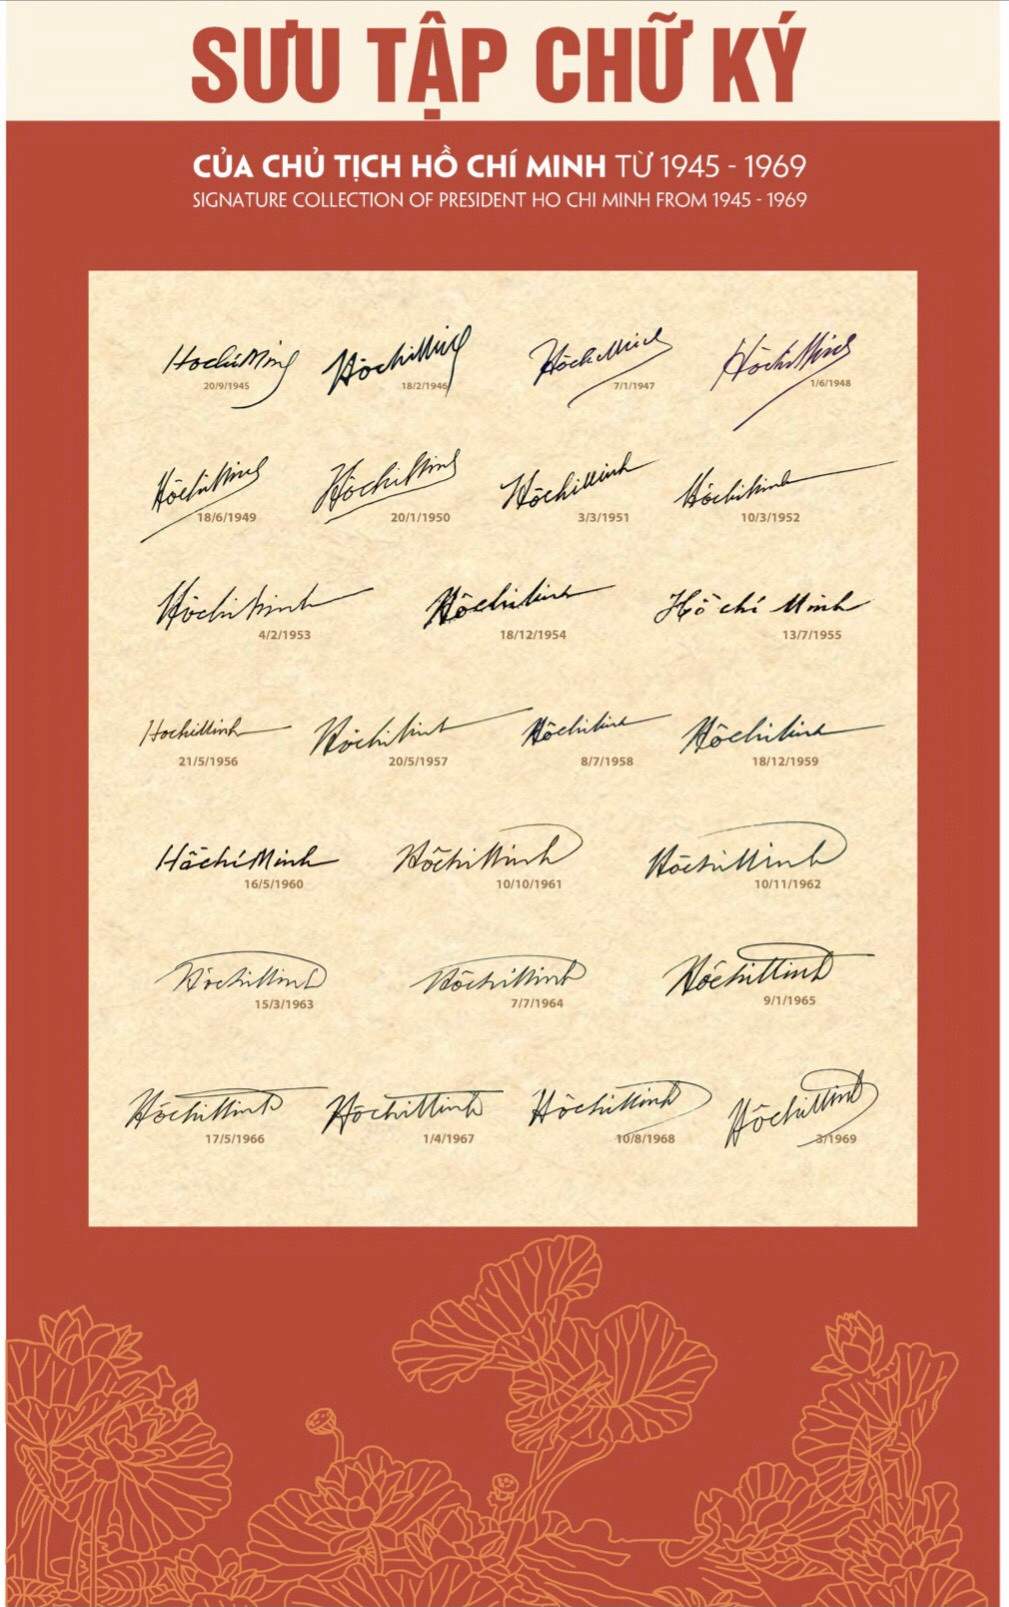 SƯU TẬP CHỮ KÝ
CỦA CHỦ TỊCH HỒ CHÍ MINH TỪ 1945 - 1969
SIGNATURE COLLECTION OF PRESIDENT HO CHI MINH FROM 1945 - 1969
HochiMinh HồchiMinh HồchiMinh HồchiMinh
20/9/1945 18/2/1946 7/1/1947 1/6/1948
HồchiMinh HồchiMinh HồchiMinh HồchiMinh
18/6/1949 20/1/1950 3/3/1951 10/3/1952
HồchiMinh HồchiMinh Hồ chí Minh
4/2/1953 18/12/1954 13/7/1955
HochiMinh HồchiMinh HồchiMinh HồchiMinh
21/5/1956 20/5/1957 8/7/1958 18/12/1959
HồchíMinh HồchiMinh HồchiMinh
16/5/1960 10/10/1961 10/11/1962
HồchiMinh HồchíMinh HồchiMinh
15/3/1963 7/7/1964 9/1/1965
HồchiMinh HồchiMinh HồchiMinh HồchiMinh
17/5/1966 1/4/1967 10/8/1968 3/1969